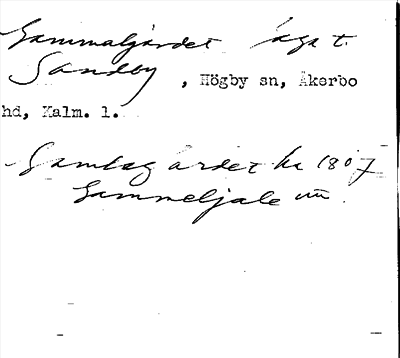 Gammalgärdet äga t.
Sandby, Högby sn, Åkerbo
hd, Kalm. l.
Gamlegärdet ha 1807
Gammeljale